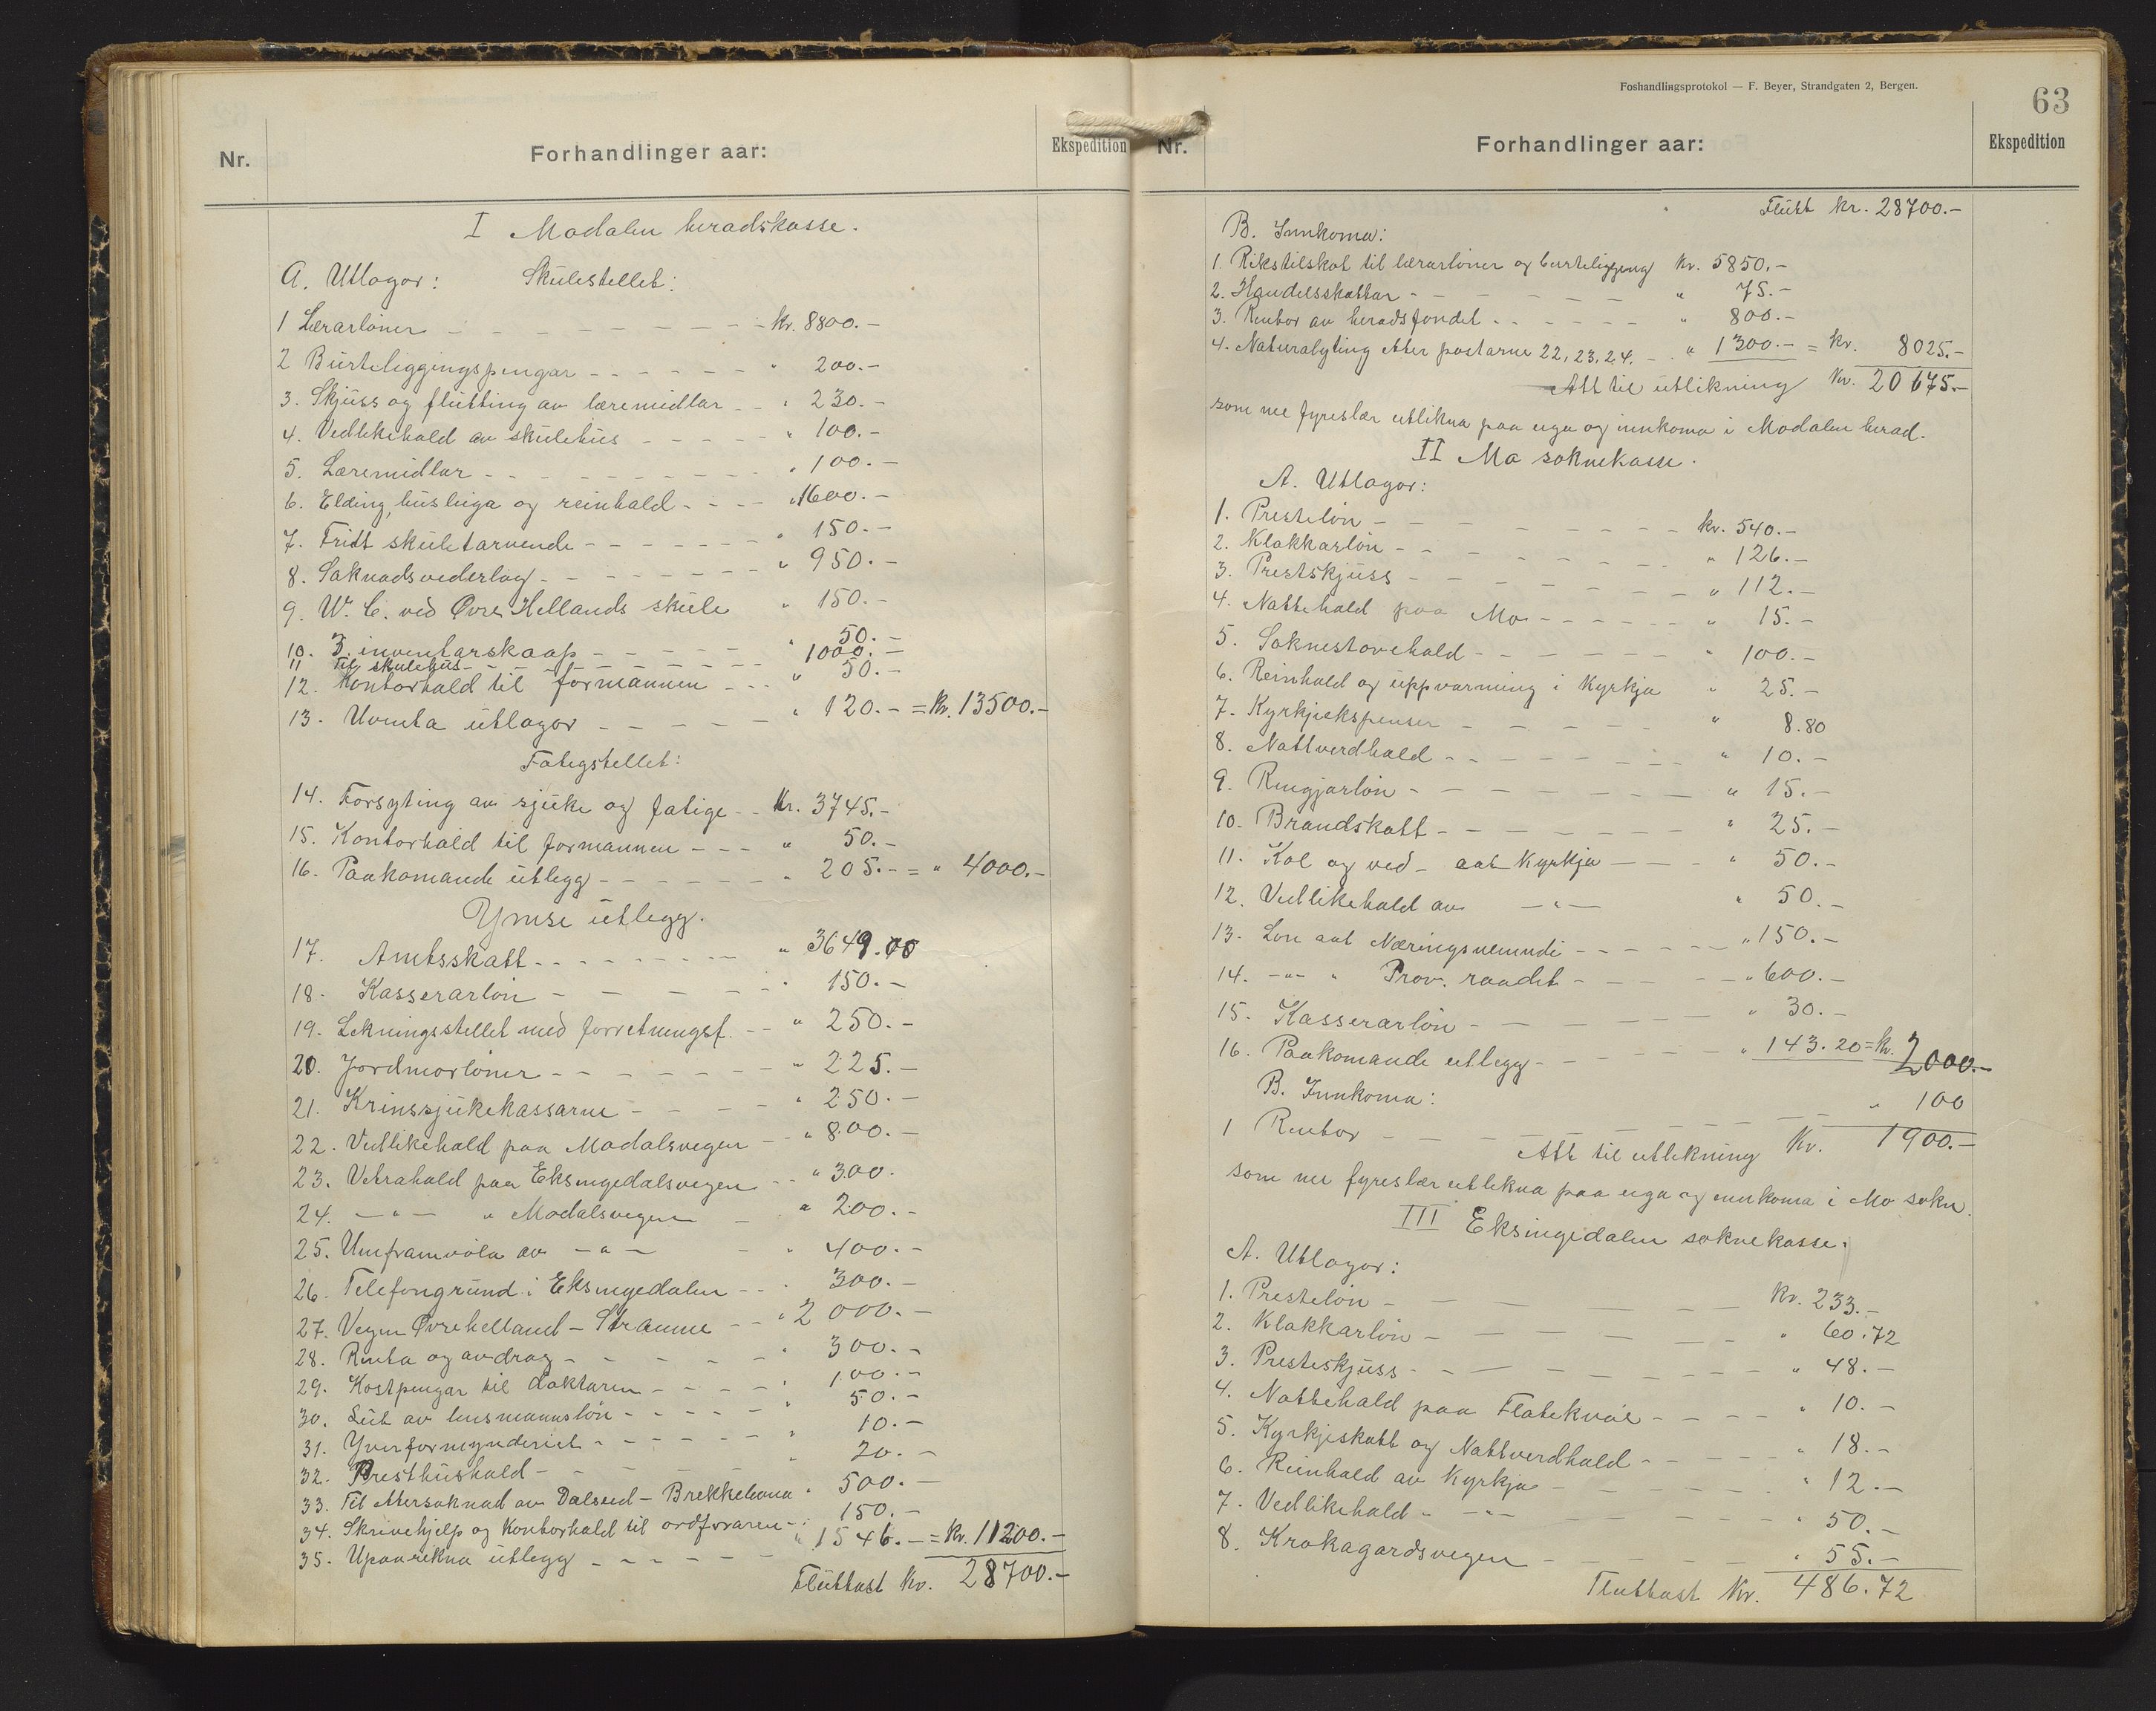 Nr.
Forhandlinger aar:
Ekspedition
I Modalen heradskasse.
A. Utlogor: Skulestellet:
1 Lærarløner - - - kr. 8800.-
2 Burteliggingspengar - - - " 200.-
3. Skjuss og flutting av læremidlar - - " 230.-
4. Vedlikehald av skulehus - - - " 100.-
5. Læremidlar - - - " 100.-
6. Elding, husleiga og reinhald - - - " 1600.-
7. Fritt skuletarvende - - - " 150.-
8. Saknadsvederlag - - - " 950.-
9. W. C. ved Øvre Hellands skule " 150.-
10. 3. inventarskaap - - - " 50.-
11 Til skulehus - - - 1000.-
12. Kontorhald til formannen - - - " 50.-
13. Uventa utlogor - - - " 120.- = Kr. 13500.-
Fatigstellet:
14. Forsyting av sjuke og fatige - - Kr. 3745.-
15. Kontorhald til formannen - - - " 50.-
16. Paakomande utlegg - - - " 205.- = " 4000.-
Ymse utlegg.
17. Amtsskatt - - - " 3649.00
18. Kasserarløn - - - " 150.-
19. Lekningsstellet med forretningsf. - - " 250.-
20. Jordmorløner - - - " 225.-
21. Krinssjukekassarne - - - " 250.-
22. Vedlikehald paa Modalsvegen - - " 800.-
23. Vetrahald paa Eksingedalsvegen - - " 300.
24. - " - " Modalsvegen - " 200.-
25. Umframvøla av - " - - " 400.-
26. Telefongrunn i Eksingedalen - - " 300.-
27. Vegen Øvrehelland - Straume - - " 2000.-
28. Renta og avdrag - - - " 300.-
29. Kostpengar til doktaren - - - " 100.-
30. Lut av lensmannsløn - - - " 50.-
31. Yverformynderiet - - - " 10.-
32. Presthushald - - - " 20.-
33. Til ettersøknad av Dalseid - Brekkebana " 500.-
34. Skrivehjelp og Kontorhald til ordføraren - " 150.-
35. Upaarekna utlegg - - - " 1546.- = Kr. 11200.-
Fluttast Kr. 28700.-
Foshandlingsprotokol — F. Beyer, Strandgaten 2, Bergen.
63
Nr.
Forhandlinger aar:
Ekspedition
Flutt kr. 28700.-
B. Innkoma:
1. Rikstilskot til lærarløner og burteligging Kr. 5850.-
2. Handelsskattar - - - " 75.-
3. Rentor av heradsfondet - - - " 800.-
4. Naturalyting etter postarne 22, 23, 24. - - " 1300.- = Kr. 8025.-
Att til utlikning Kr. 20675.-
som me fyreslær utlikna paa eiga og innkoma i Modalen herad.
II Mo soknekasse.
A. Utlogor:
1. Presteløn - - - kr. 540.-
2. Klokkarløn - - - " 126.-
3. Prestskjuss - - - " 112.-
4. Nattehald paa Mo - - - " 15.-
5. Soknestovehald - - - " 100.-
6. Reinhald og uppvarming i Kyrkja " 25.-
7. Kyrkjeekspenser - - - " 8.80
8. Nattverdhald - - - " 10.-
9. Ringjarløn - - - " 15.-
10. Brandskatt - - - " 25.-
11. Kol og ved - aat Kyrkja - - - " 50.-
12. Vedlikehald av - " - " 50.-
13. Løn aat Næringsnemndi - - - " 150.-
14. - " - " Prov. raadet - - - " 600.-
15. Kasserarløn - - - " 30.-
16. Paakomande utlegg - - - " 143.20 = Kr. 2000.-
B. Innkoma:
1 Rentor - - - " 100
Att til utlikning Kr. 1900.-
som me fyreslær utlikna paa eiga og innkoma i Mo sokn.
III Eksingedalen soknekasse.
A. Utlogor:
1. Presteløn - - - Kr. 233.-
2. Klokkarløn - - - " 60.72
3. Presteskjuss - - - " 48.-
4. Nattehald paa Flatekvål - - - " 10.-
5. Kyrkjeskatt og Nattverdhald - - - " 18.-
6. Reinhald av Kyrkja - - - " 12.-
7. Vedlikehald " - " - - - " 50.-
8. Krokagardsvegen - - - " 55.-
Fluttast Kr. 486.72